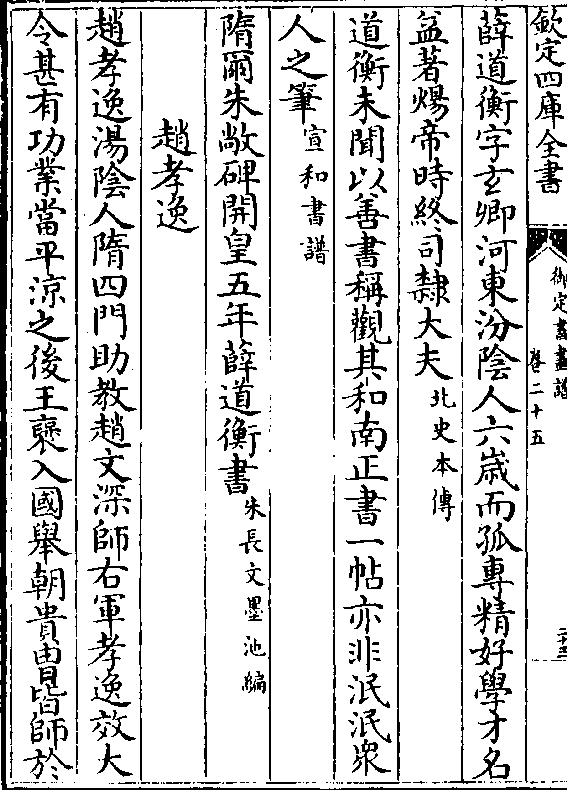 欽定四庫全書
御定書畫譜
卷二十五
薛道衡字玄卿河東汾陰人六歳而孤專精好學才名
益著煬帝時終司隸大夫北史本傳
道衡未聞以善書稱觀其和南正書一帖亦非泯泯衆
人之筆宣和書譜
隋爾朱敞碑開皇五年薛道衡書朱長文墨池編
趙孝逸
趙孝逸湯陰人隋四門助教趙文深師右軍孝逸效大
令甚有功業當平涼之後王襃入國舉朝貴胄皆師於